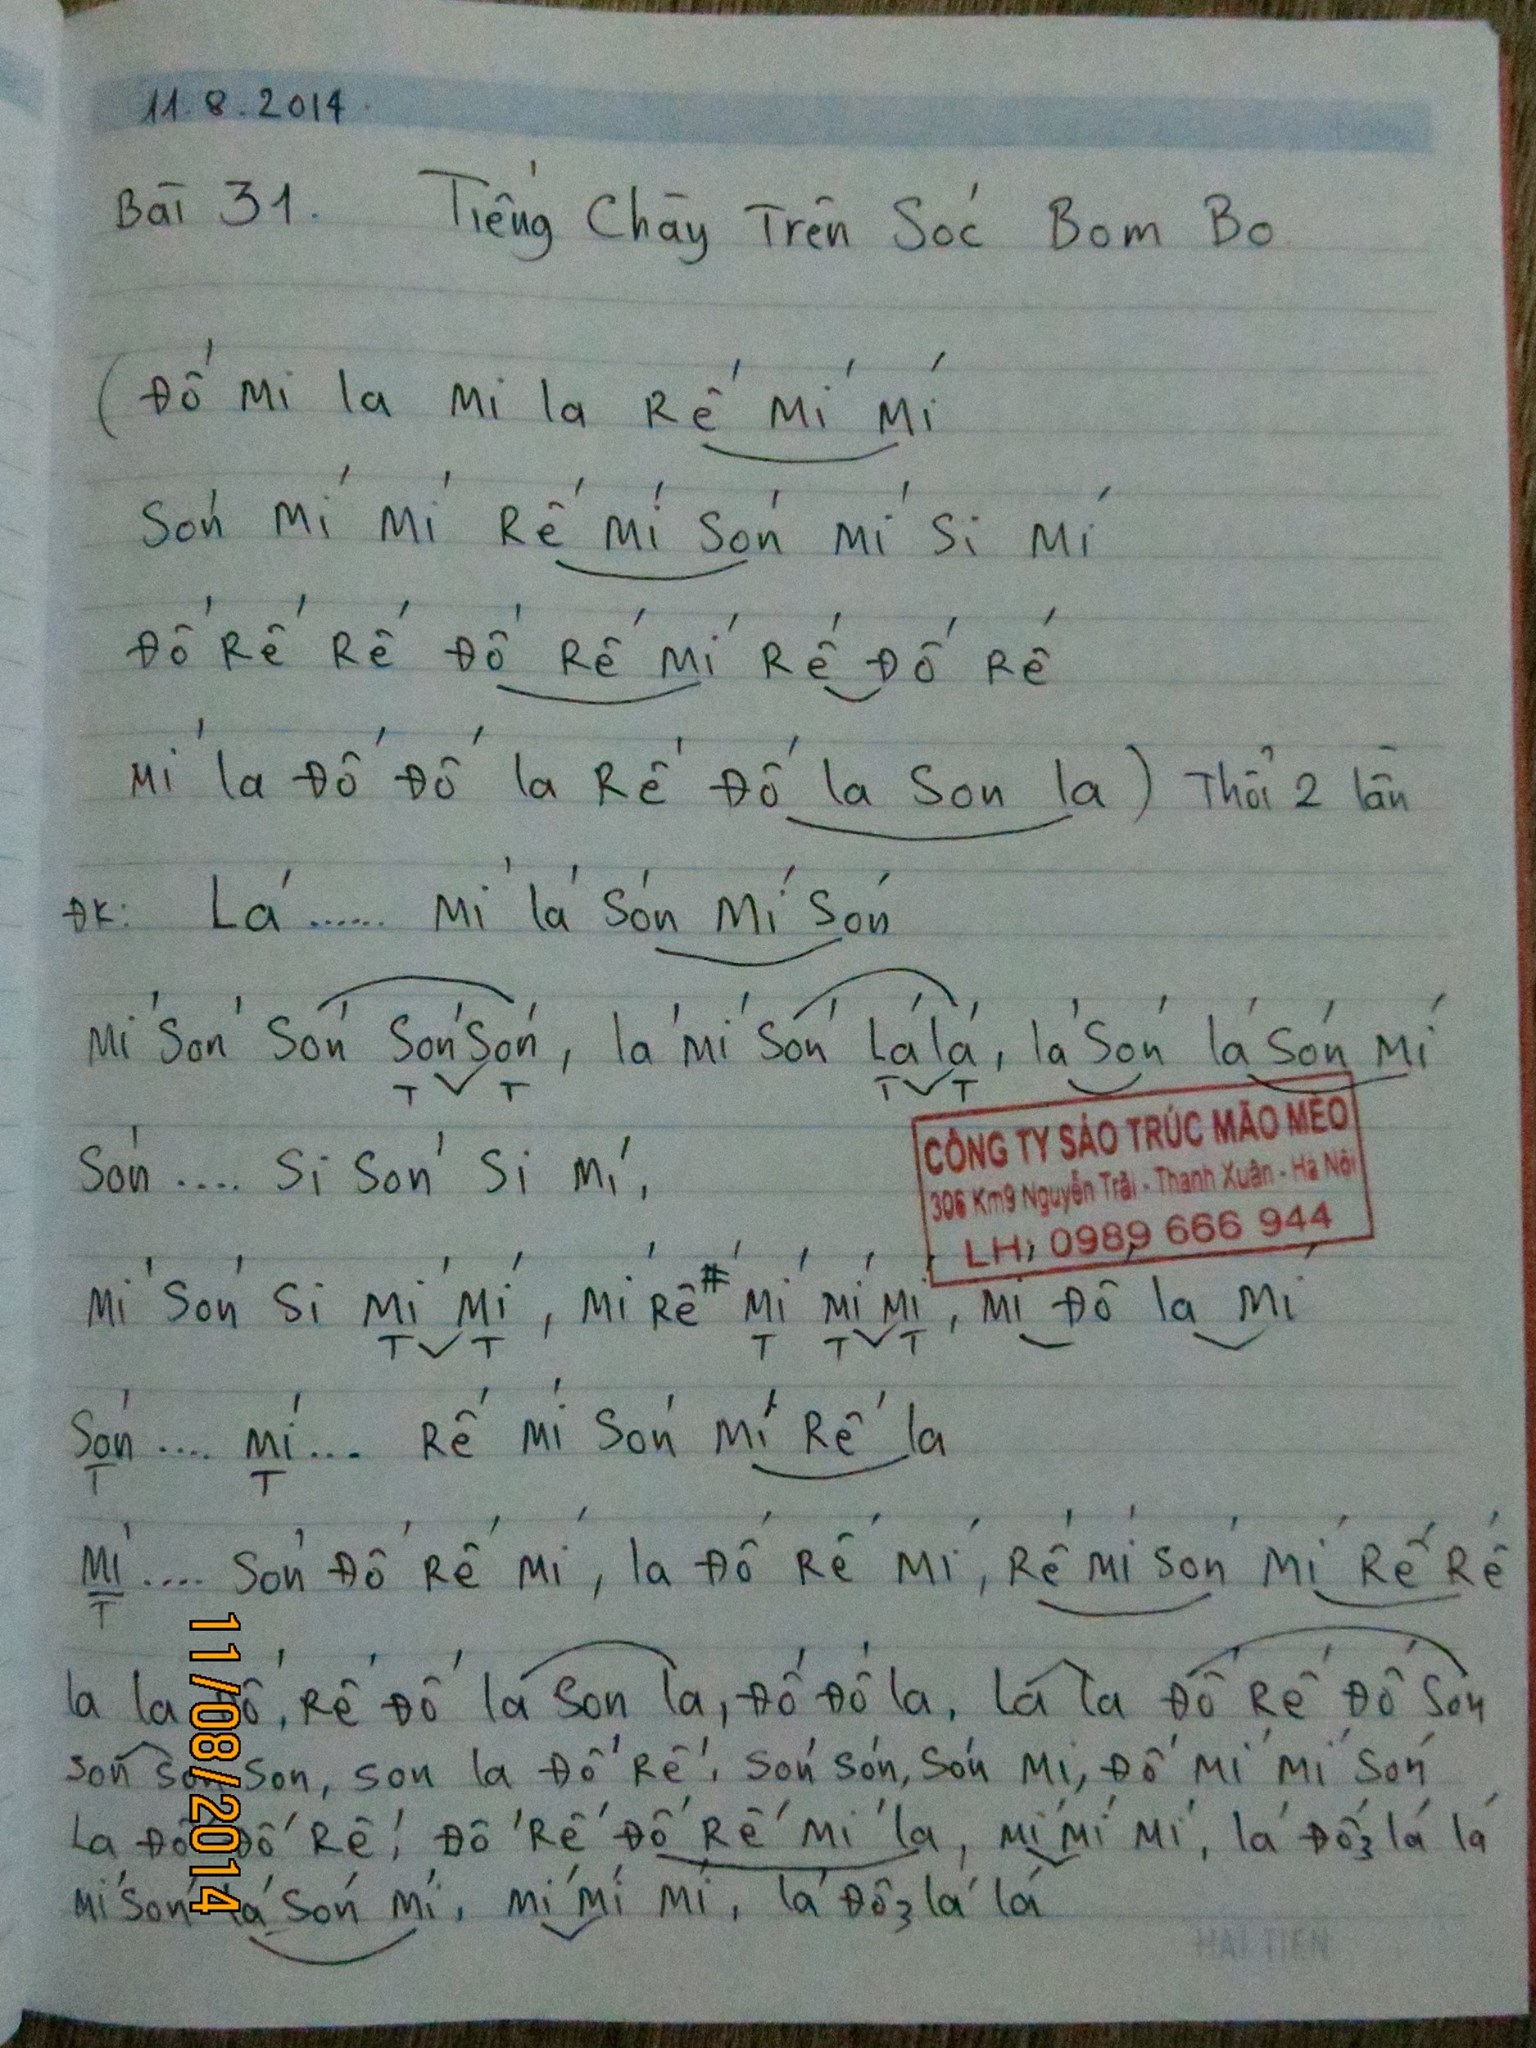 11.8.2014
Bài 31. Tiếng Chày Trên Sóc Bom Bo
(Đố Mi la Mi la Rế Mí Mí
Són Mí Mí Rế Mí Són Mí Si Mí
Đố Rế Rế Đố Rế Mí Rế Đố Rế
Mí la Đố Đố la Rế Đố la Son la) Thổi 2 lần
ĐK: Lá ...... Mí lá Són Mí Són
Mí Són Són Són Són, lá mí Són Lá lá, lá Són lá Són Mí
T T T T
CÔNG TY SÁO TRÚC MÃO MÈO
306 Km9 Nguyễn Trãi - Thanh Xuân - Hà Nội
LH: 0989 666 944
Són .... Si Són Si Mí,
Mí Són Si Mí Mí, Mí Rê# Mí Mí Mí, Mí Đố la Mí
T T T T T
Són .... Mí ... Rế Mí Són Mí Rế la
T T
Mí .... Són Đố Rế Mí, la Đố Rế Mí, Rế Mí Són Mí Rế Rế
T
la la Đố, Rế Đố la Son la, Đố Đố la, Lá la Đố Rế Đố Son
Son Son Son, Son la Đố Rế, Són Són, Són Mi, Đố Mí Mí Són
La Đố Đố Rế, Đố Rế Đố Rế Mí la, Mí Mí Mí, lá Đố3 lá lá
Mí Són lá Són Mí, Mí Mí Mí, lá Đố3 lá lá
HẢI TIẾN
11/08/2014